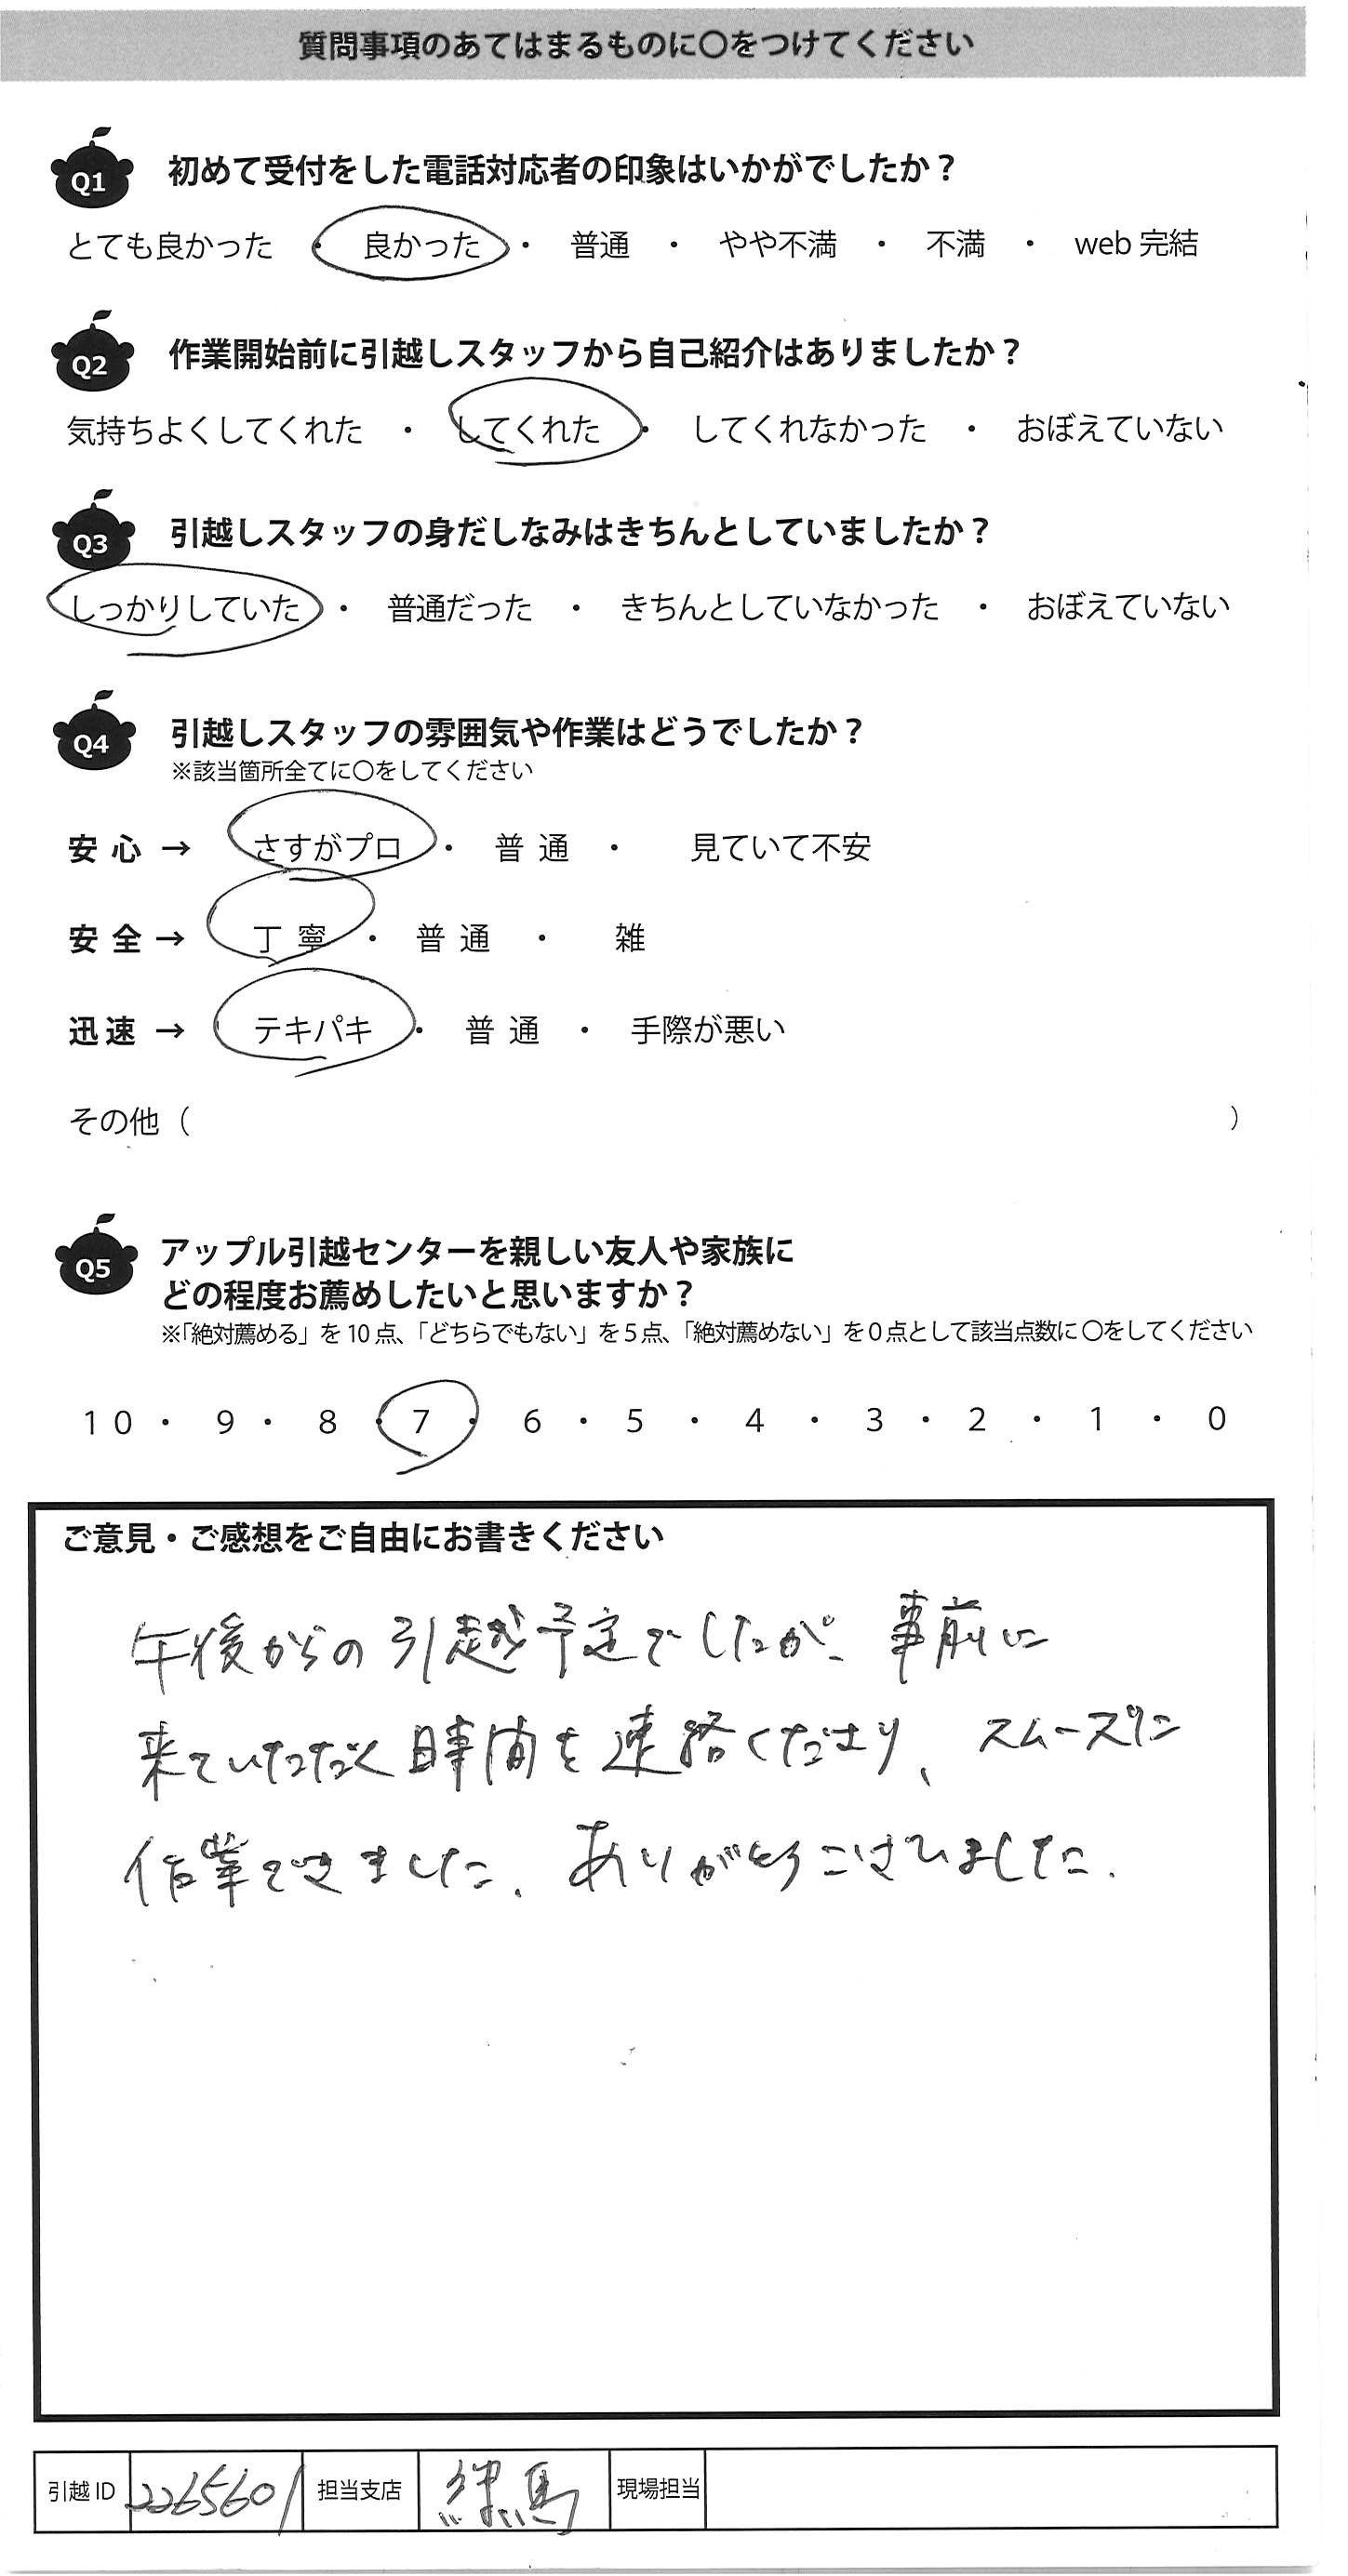 質問事項のあてはまるものに〇をつけてください
Q1 初めて受付をした電話対応者の印象はいかがでしたか？
とても良かった ・ 良かった ・ 普通 ・ やや不満 ・ 不満 ・ web 完結
Q2 作業開始前に引越しスタッフから自己紹介はありましたか？
気持ちよくしてくれた ・ してくれた ・ してくれなかった ・ おぼえていない
Q3 引越しスタッフの身だしなみはきちんとしていましたか？
しっかりしていた ・ 普通だった ・ きちんとしていなかった ・ おぼえていない
Q4 引越しスタッフの雰囲気や作業はどうでしたか？
※該当箇所全てに〇をしてください
安心 → さすがプロ ・ 普通 ・ 見ていて不安
安全 → 丁寧 ・ 普通 ・ 雑
迅速 → テキパキ ・ 普通 ・ 手際が悪い
その他（ ）
Q5 アップル引越センターを親しい友人や家族に
どの程度お薦めしたいと思いますか？
※「絶対薦める」を10点、「どちらでもない」を5点、「絶対薦めない」を0点として該当点数に〇をしてください
10 ・ 9 ・ 8 ・ 7 ・ 6 ・ 5 ・ 4 ・ 3 ・ 2 ・ 1 ・ 0
ご意見・ご感想をご自由にお書きください
午後からの引越予定でしたが、事前に
来ていただく時間を連絡くださり、スムーズに
作業できました。ありがとうございました。
引越ID 2265601 担当支店 練馬 現場担当